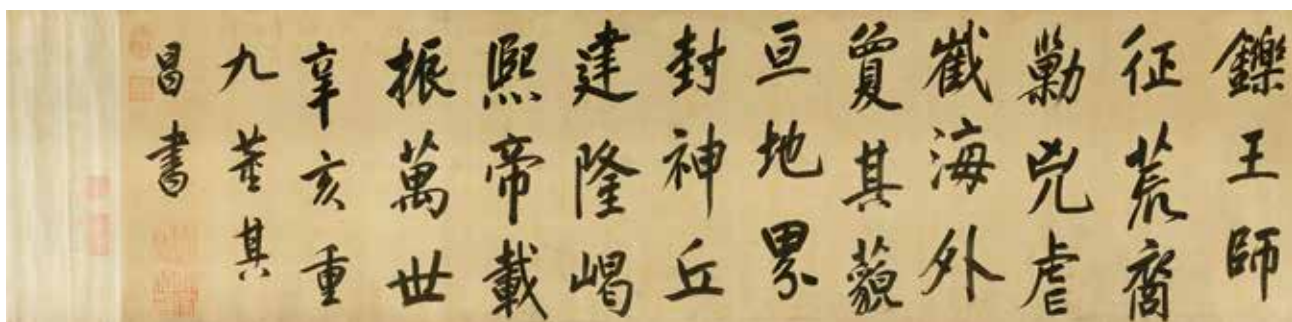 鑠王師
征荒裔
勦兇虐
截海外
夐其藐
亘地界
封神丘
建隆嵑
熙帝載
振萬世
辛亥重
九董其
昌書